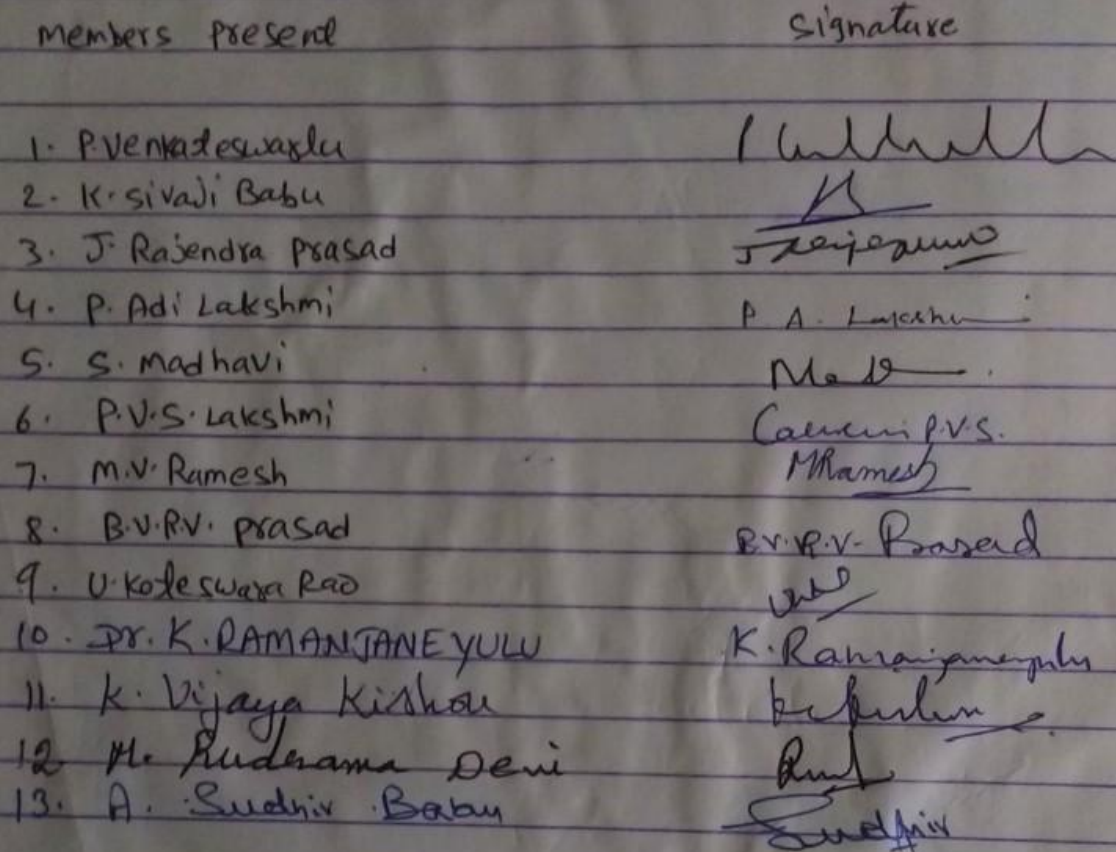 members present signature
1. P. Venkateswarlu
2. K. Sivaji Babu
3. J. Rajendra prasad
4. P. Adi Lakshmi P A. Lakshmi
5. S. Madhavi
6. P.V.S. Lakshmi P.V.S.
7. M.V. Ramesh MRamesh
8. B.V.R.V. prasad B.V.R.V. Prasad
9. U. Koteswara Rao
10. Dr. K. RAMANJANEYULU K. Ramanjaneyulu
11. K. Vijaya Kishore
12 M. Rudrama Devi
13. A. Sudhir Babu Sudhir